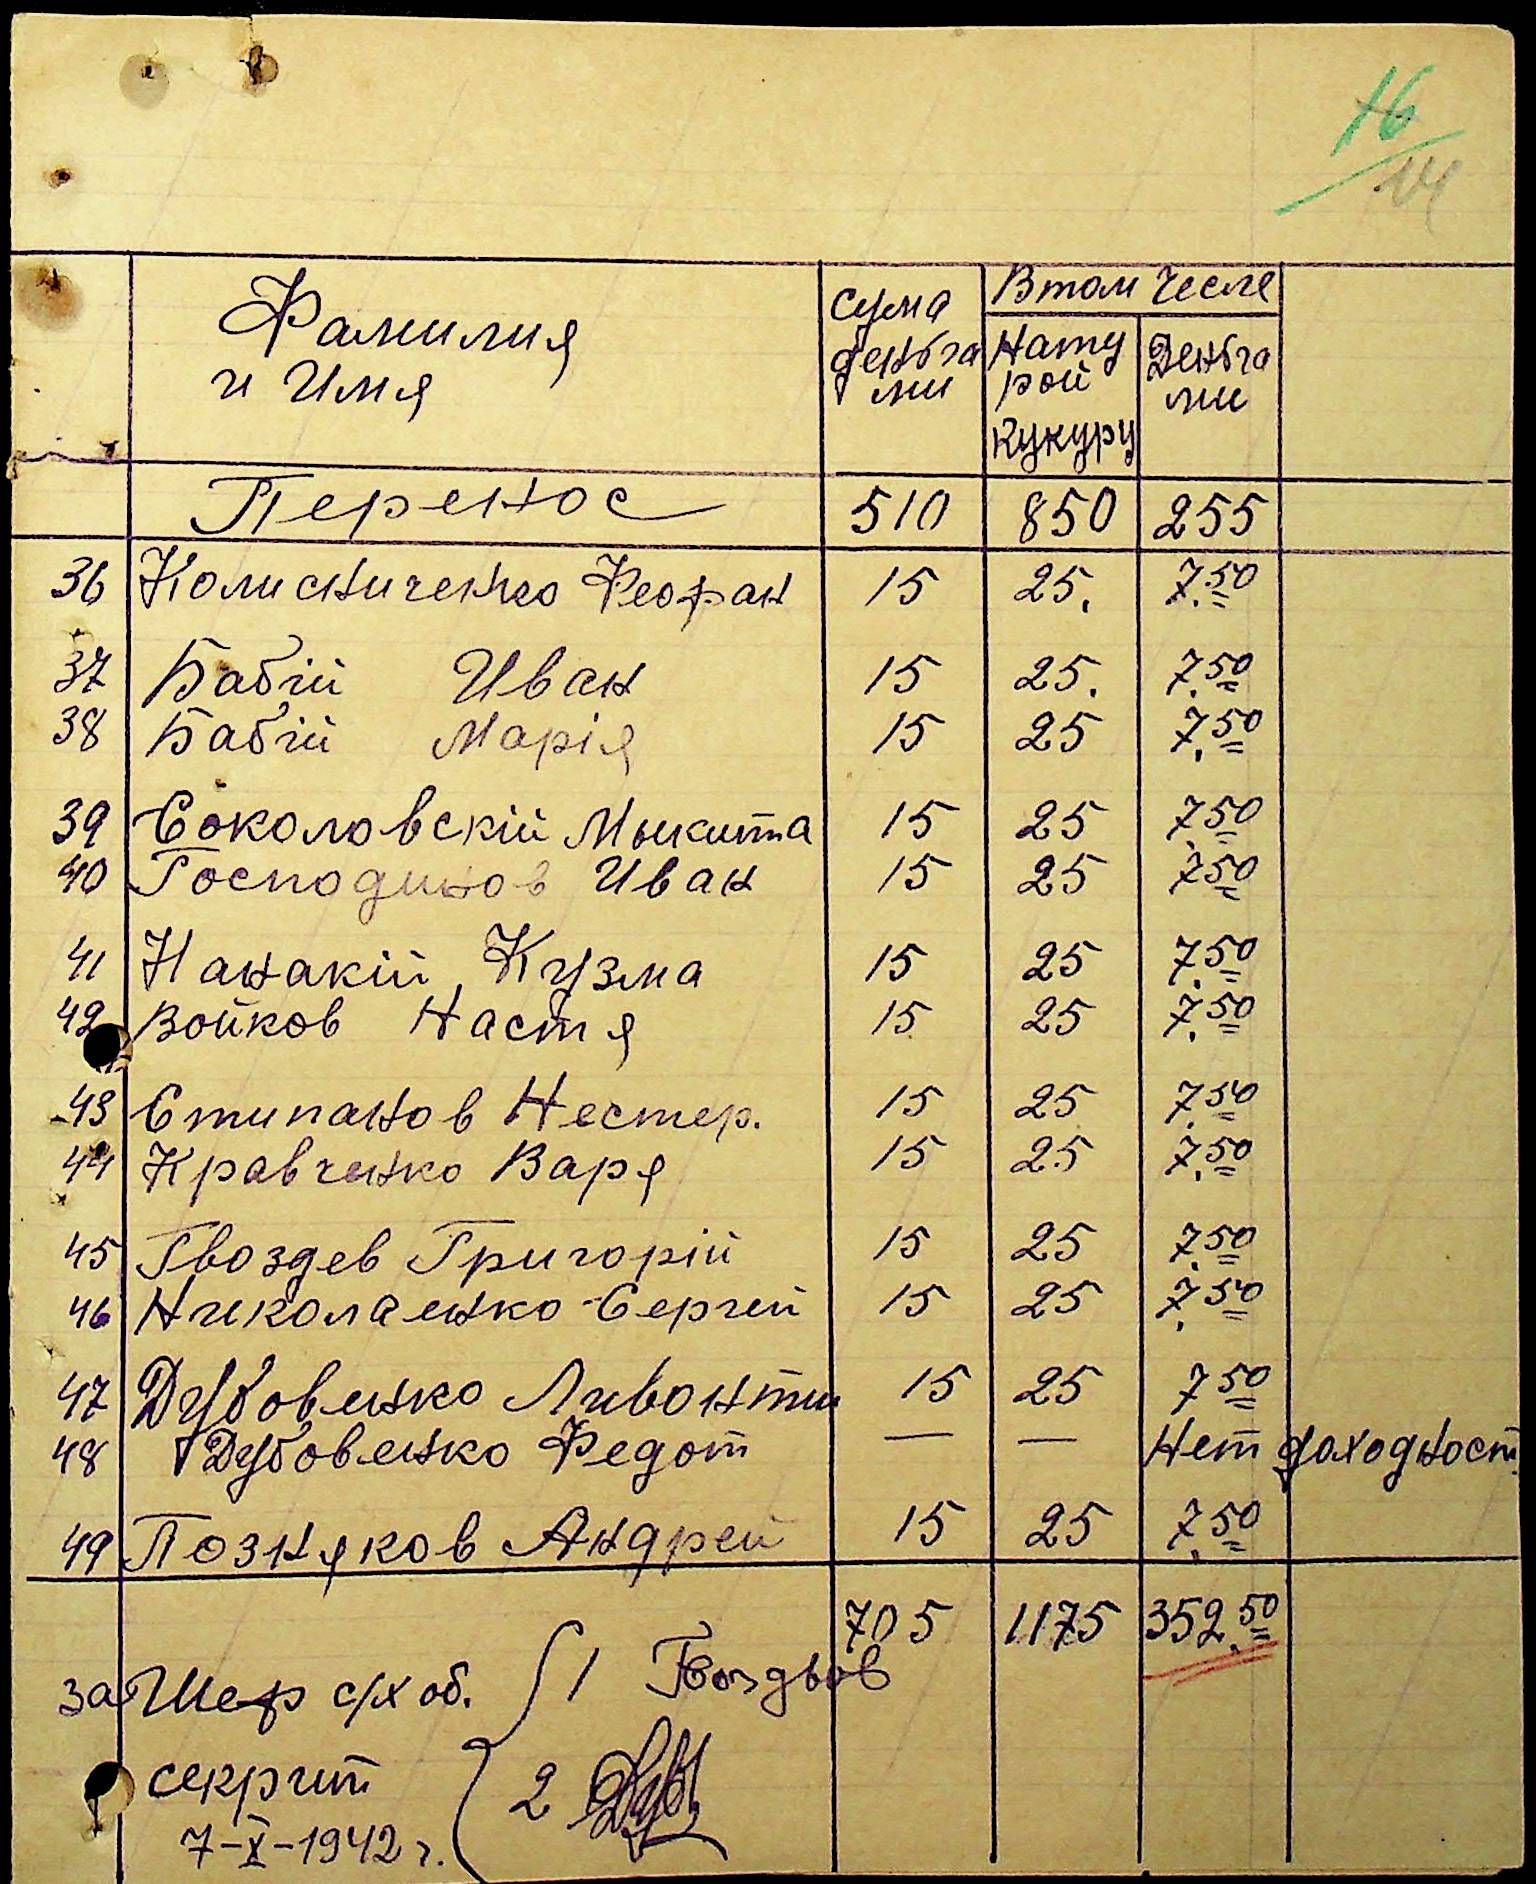 16
14
Фамилия
и Имя
сума
деньга
ми
Втом Чесле
Нату
рой
кукуру
Деньга
ми
Перенос 510 850 255
36 Колисниченко Феофан 15 25. 7.50
37 Бабій Иван 15 25. 7.50
38 Бабій Марія 15 25 7.50
39 Соколовскій Мыкита 15 25 7.50
40 Господинов Иван 15 25 7.50
41 Нанакій Кузма 15 25 7.50
42 Войков Настя 15 25 7.50
43 Стипанов Нестер. 15 25 7.50
44 Кравченко Варя 15 25 7.50
45 Гвоздев Григорій 15 25 7.50
46 Николаенко Сергей 15 25 7.50
47 Дубовенко Ливонти 15 25 7.50
48 Дубовенко Федот — — Нет доходност
49 Позняков Андрей 15 25 7.50
705 1175 352.50
за Шеф с/х об. 1 Гвоздьов
секрит 2
7-X-1942 г.